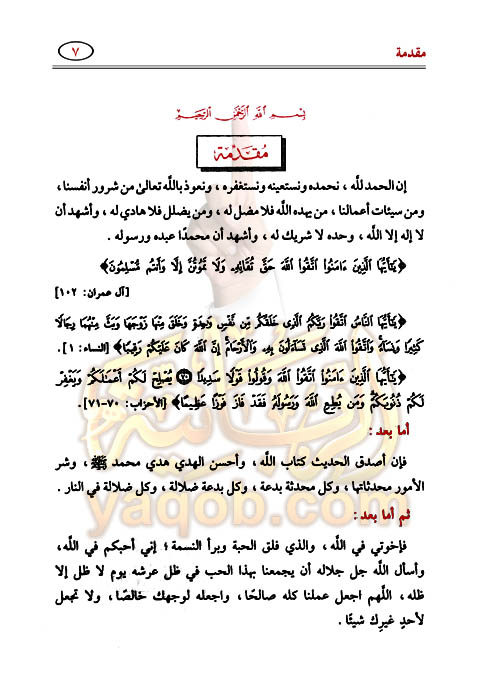 مقدمة
٧
بسم الله الرحمن الرحيم
مقدمة
إن الحمد لله ، نحمده ونستعينه ونستغفره ، ونعوذ بالله تعالىٰ من شرور أنفسنا ،
ومن سيئات أعمالنا ، من يهده الله فلا مضل له ، ومن يضلل فلا هادي له ، وأشهد أن
لا إله إلا الله ، وحده لا شريك له ، وأشهد أن محمدًا عبده ورسوله .
﴿يَٰٓأَيُّهَا ٱلَّذِينَ ءَامَنُوا۟ ٱتَّقُوا۟ ٱللَّهَ حَقَّ تُقَاتِهِۦ وَلَا تَمُوتُنَّ إِلَّا وَأَنتُم مُّسْلِمُونَ﴾
[آل عمران: ١٠٢]
﴿يَٰٓأَيُّهَا ٱلنَّاسُ ٱتَّقُوا۟ رَبَّكُمُ ٱلَّذِى خَلَقَكُم مِّن نَّفْسٍ وَٰحِدَةٍ وَخَلَقَ مِنْهَا زَوْجَهَا وَبَثَّ مِنْهُمَا رِجَالًا
كَثِيرًا وَنِسَآءً وَٱتَّقُوا۟ ٱللَّهَ ٱلَّذِى تَسَآءَلُونَ بِهِۦ وَٱلْأَرْحَامَ إِنَّ ٱللَّهَ كَانَ عَلَيْكُمْ رَقِيبًا﴾ [النساء: ١] .
﴿يَٰٓأَيُّهَا ٱلَّذِينَ ءَامَنُوا۟ ٱتَّقُوا۟ ٱللَّهَ وَقُولُوا۟ قَوْلًا سَدِيدًا ٧٠ يُصْلِحْ لَكُمْ أَعْمَٰلَكُمْ وَيَغْفِرْ
لَكُمْ ذُنُوبَكُمْ وَمَن يُطِعِ ٱللَّهَ وَرَسُولَهُۥ فَقَدْ فَازَ فَوْزًا عَظِيمًا﴾ [الأحزاب: ٧٠-٧١] .
أما بعد :
فإن أصدق الحديث كتاب الله ، وأحسن الهدي هدي محمد ﷺ ، وشر
الأمور محدثاتها ، وكل محدثة بدعة ، وكل بدعة ضلالة ، وكل ضلالة في النار .
ثم أما بعد :
فإخوتي في الله ، والذي فلق الحبة وبرأ النسمة ؛ إني أحبكم في الله ،
وأسأل الله جل جلاله أن يجمعنا بهذا الحب في ظل عرشه يوم لا ظل إلا
ظله ، اللهم اجعل عملنا كله صالحًا ، واجعله لوجهك خالصًا ، ولا تجعل
لأحدٍ غيرك شيئًا .
yaqob.com